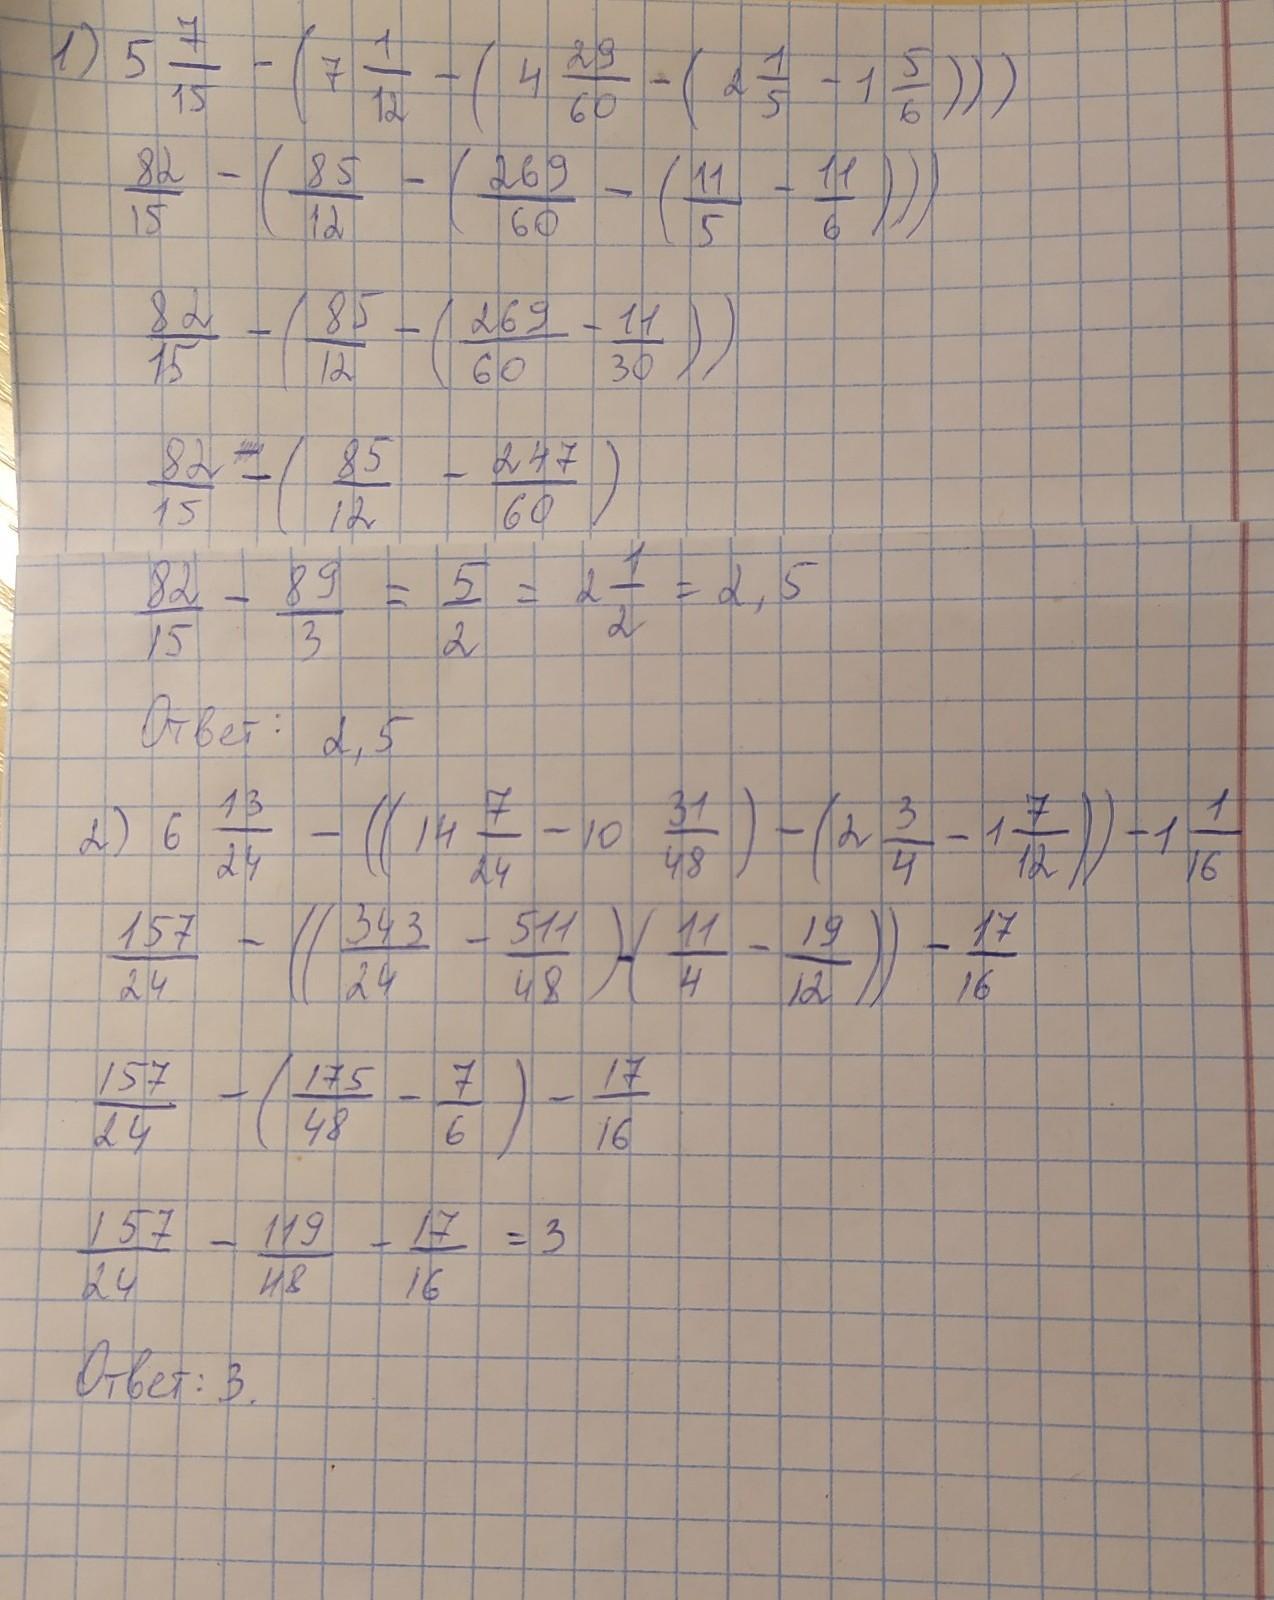 1) 5 7/15 - (7 1/12 - (4 29/60 - (2 1/5 - 1 5/6)))
82/15 - (85/12 - (269/60 - (11/5 - 11/6)))
82/15 - (85/12 - (269/60 - 11/30))
82/15 - (85/12 - 247/60)
82/15 - 89/3 = 5/2 = 2 1/2 = 2,5
Ответ: 2,5
2) 6 13/24 - ((14 7/24 - 10 31/48) - (2 3/4 - 1 7/12)) - 1 1/16
157/24 - ((343/24 - 511/48) - (11/4 - 19/12)) - 17/16
157/24 - (175/48 - 7/6) - 17/16
157/24 - 119/48 - 17/16 = 3
Ответ: 3.